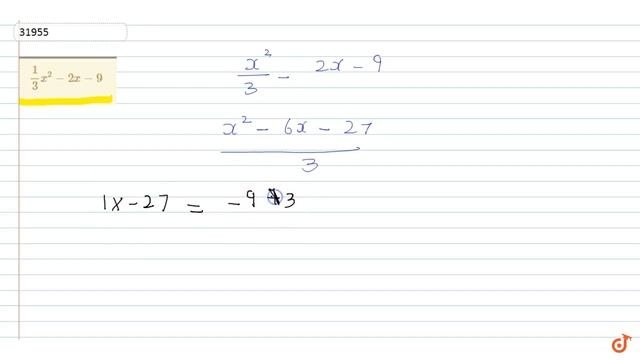 31955
1/3 x² − 2x − 9
x²/3 − 2x − 9
(x² − 6x − 27)/3
1x − 27 = −9 3